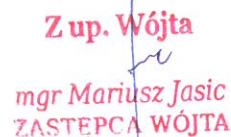 Z up. Wójta
mgr Mariusz Jasic
ZASTĘPCA WÓJTA